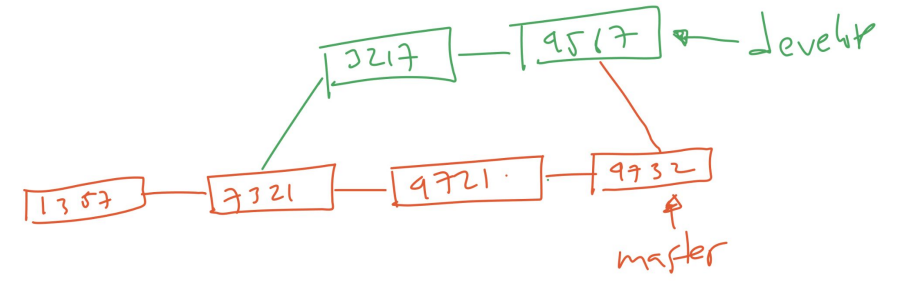 3217
9567
develop
1357
7321
9721
9732
master